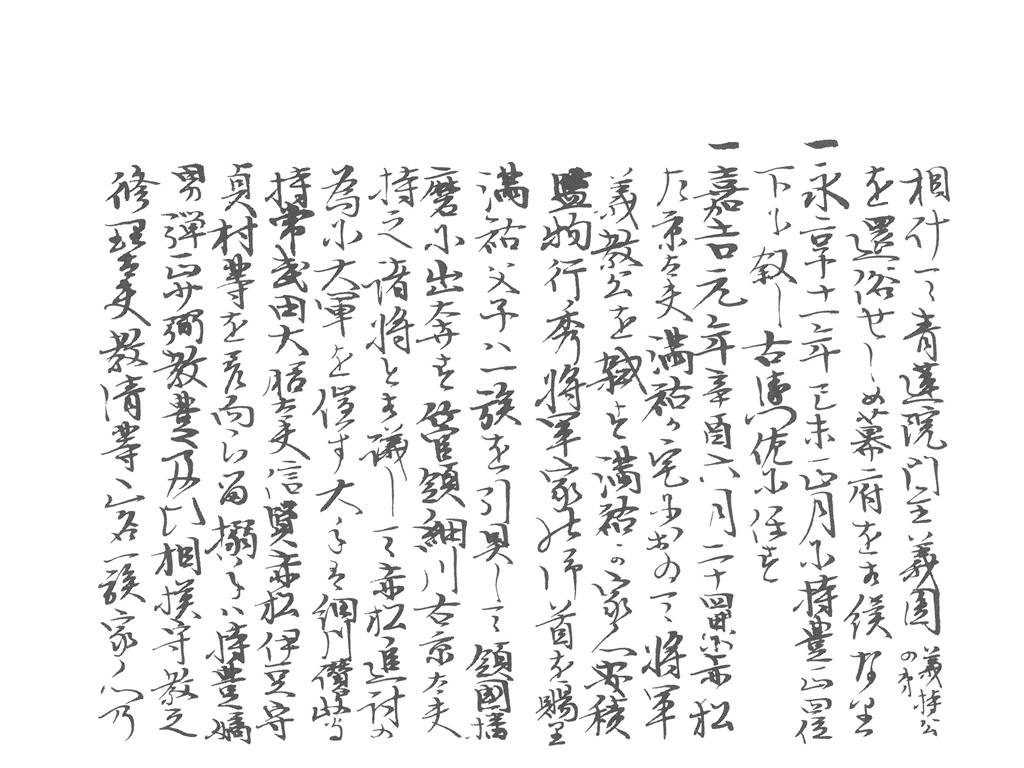 相計て青蓮院門主義圓義持公の弟
を還俗せしめ幕府を相続なさ
一永享十一年己未正月に持豊正四位
下に叙し右衛門佐に任す
一嘉吉元年辛酉六月二十四日赤松
左京大夫満祐か宅において将軍
義教公を弑す満祐か家人安積
監物行秀将軍家の御首を賜る
満祐父子ハ一族を引具して領國播
磨に出奔す管領細川右京大夫
持之諸将と相議して赤松追討の
為に大軍を催す大手は細川讃岐守
持常武田大膳大夫信賢赤松伊豆守
貞村等を差向らる搦手ハ持豊嫡
男弾正少弼教豊乃ひ相模守教之
修理大夫教清等山名一族家の乃